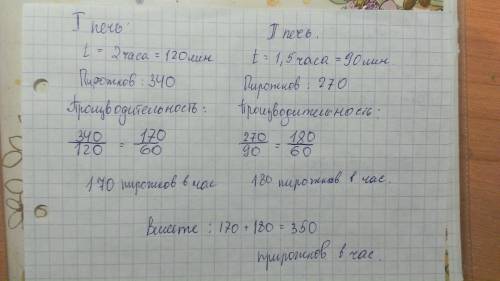 I печь:
t = 2 часа = 120 мин
Пирожков: 340
Производительность:
340/120 = 170/60
170 пирожков в час
II печь.
t = 1,5 часа = 90 мин.
Пирожков: 270
Производительность:
270/90 = 180/60
180 пирожков в час.
Вместе: 170 + 180 = 350
прирожков в час.